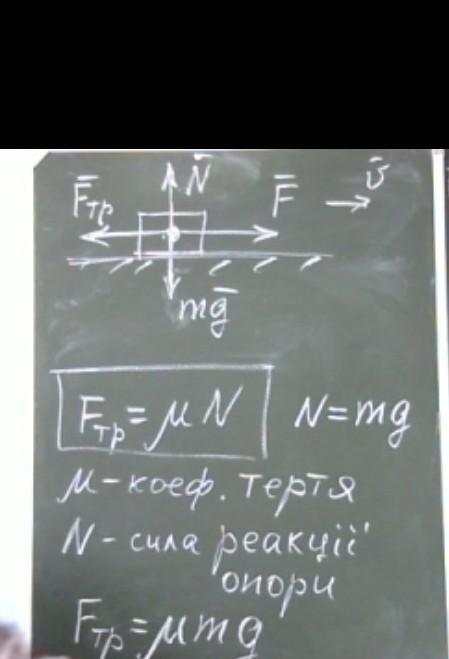 N̄
F̄тр F̄ v̄
mḡ
Fтр = μN N = mg
μ - коеф. тертя
N - сила реакції
опори
Fтр = μmg